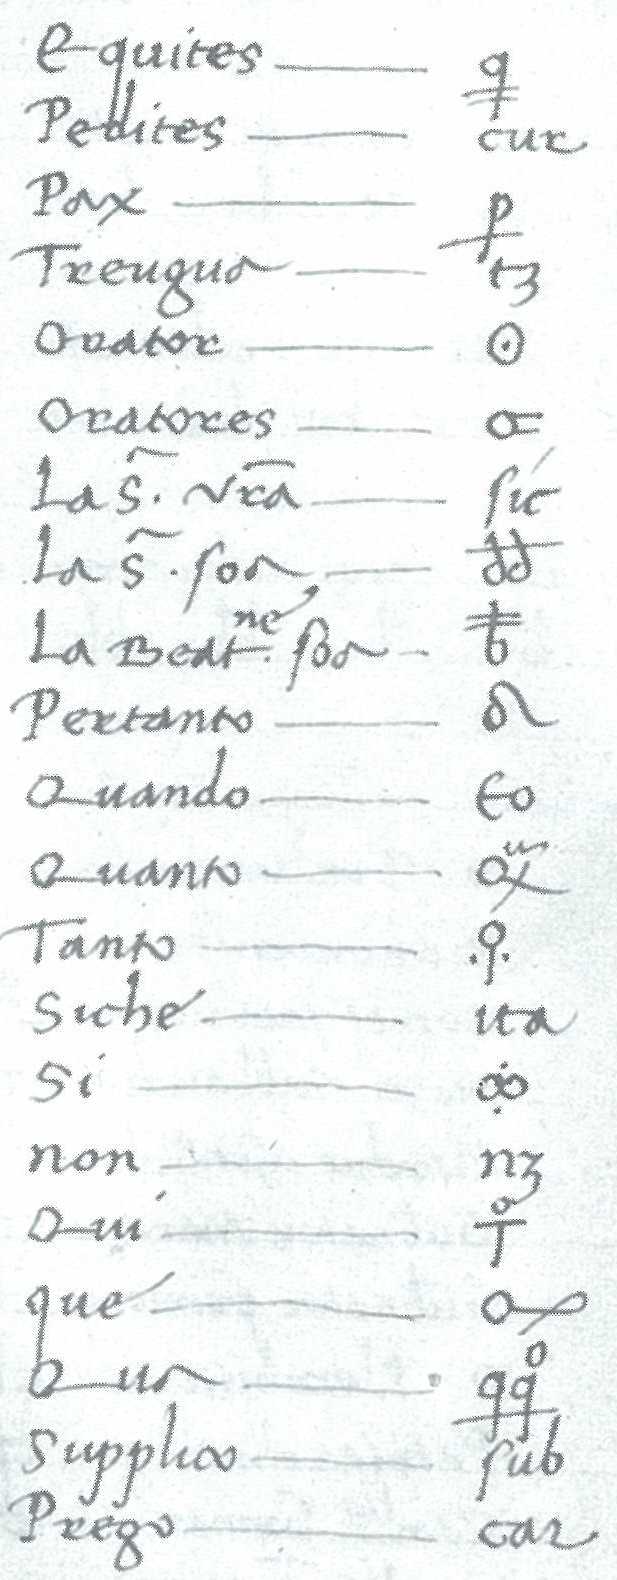 Equites q
Pedites cur
Pax p
Treugua tʒ
Orator ʘ
Oratores
La S̃. vr̄a sic
La S̃. soa dd
La Beat.ne soa b
Pertanto
Quando
Quanto
Tanto .q.
Siche ita
Si
non nʒ
Qui
que
Qua qqo
Supplico sub
Prego car